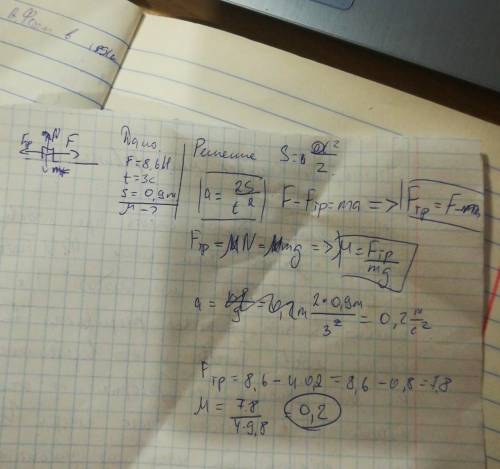 Fтр N F
mg
Дано:
F=8,6Н
t=3с
S=0,9м
μ-?
Решение S= at²/2
a = 2S/t² F-Fтр=ma => Fтр=F-ma
Fтр=μN=μmg => μ=Fтр/mg
a = 2·0,9м/3² = 0,2 м/с²
Fтр=8,6-4·0,2=8,6-0,8=7,8
μ=7.8/4·9,8=0,2